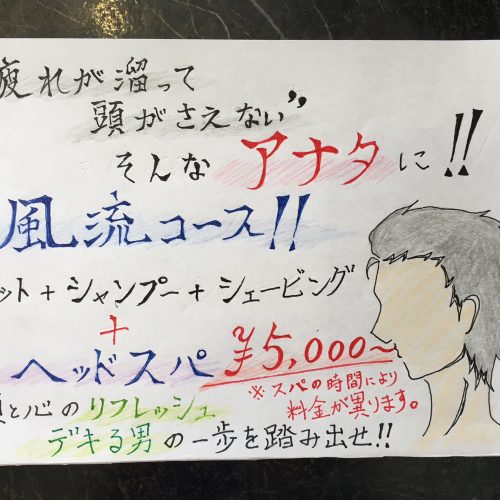 疲れが溜って
頭がさえない”
そんなアナタに!!
風流コース!!
ット+シャンプー+シェービング
+
ヘッドスパ ¥5,000~
※スパの時間により
料金が異ります。
と心のリフレッシュ
デキる男の一歩を踏み出せ!!